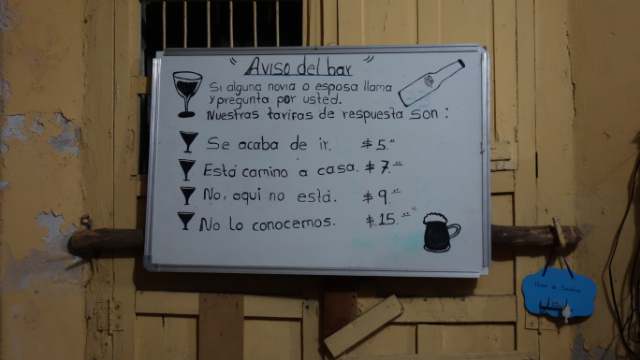 "Aviso del bar"
Si alguna novia o esposa llama
y pregunta por usted.
Nuestras tarifas de respuesta son:
Se acaba de ir. $5.
Está camino a casa. $7.
No, aquí no está. $9.
No lo conocemos. $15.